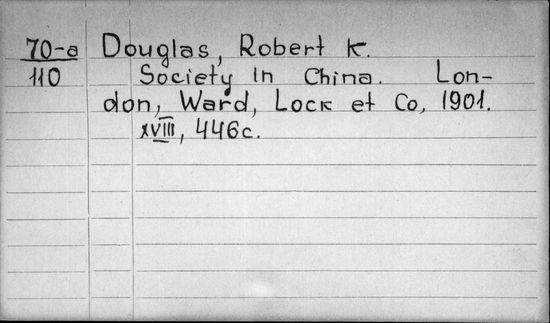 70-a Douglas, Robert K.
110 Society in China. Lon-
don, Ward, Lock et Co, 1901.
XVIII, 446c.